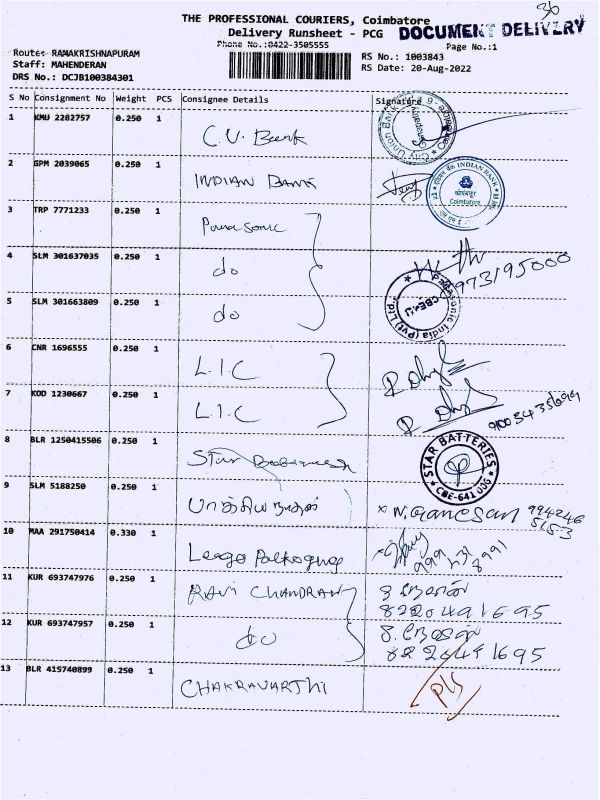 36
THE PROFESSIONAL COURIERS, Coimbatore
Delivery Runsheet - PCG DOCUMENT DELIVERY
Phone No.:0422-3505555 Page No.:1
Route: RAMAKRISHNAPURAM RS No.: 1003843
Staff: MAHENDERAN RS Date: 20-Aug-2022
DRS No.: DCJB100384301
S No Consignment No Weight PCS Consignee Details Signature
1 KMU 2282757 0.250 1 C.U. Bank
City Union Bank
2 GPM 2039065 0.250 1 INDIAN BANK
INDIAN BANK
कोयम्बत्तूर
Coimbatore
3 TRP 7771233 0.250 1 Panasonic
4 SLM 301637035 0.250 1 do
973195000
5 SLM 301663809 0.250 1 do
Panasonic India (Pvt) Ltd.
CBE
6 CNR 1696555 0.250 1 L.I.C
7 KOD 1230667 0.250 1 L.I.C
8 BLR 1250415506 0.250 1 Star
STAR BATTERIES
CBE-641 006
9 SLM 5188250 0.250 1 x N. Ganesan 994246
5153
10 MAA 291750414 0.330 1
11 KUR 693747976 0.250 1 RAVI CHANDRAN
8220491695
12 KUR 693747957 0.250 1 do
13 BLR 415740899 0.250 1 CHAKRAVARTHI